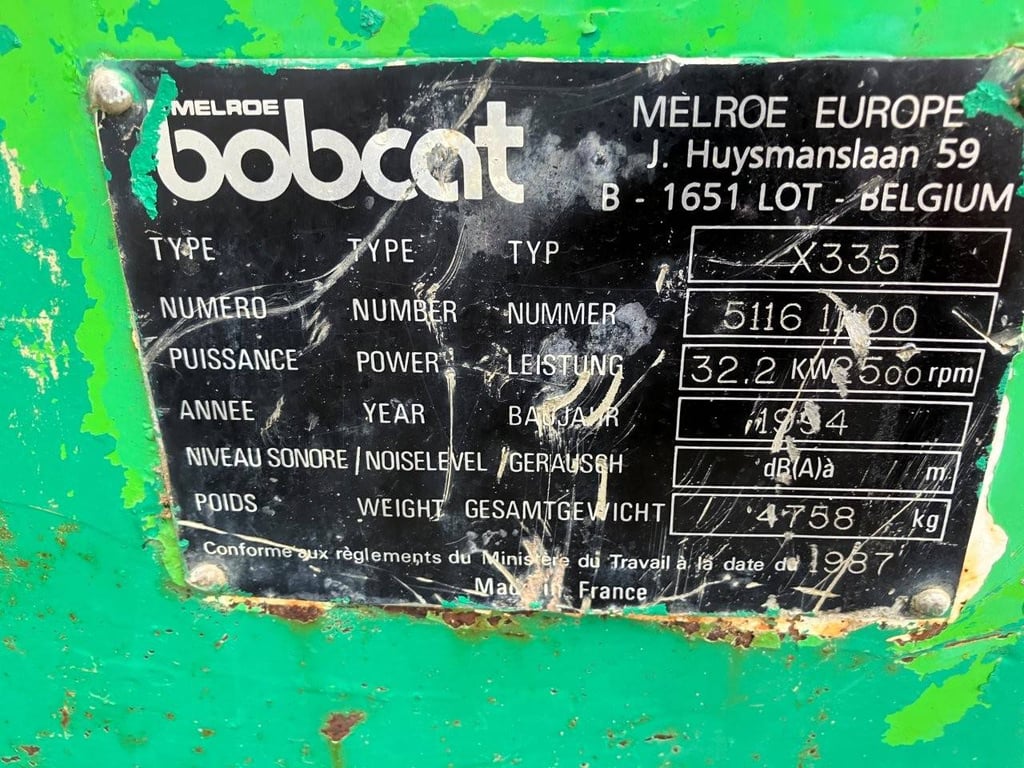 MELROE
bobcat
MELROE EUROPE
J. Huysmanslaan 59
B - 1651 LOT - BELGIUM
TYPE TYPE TYP X335
NUMERO NUMBER NUMMER 5116
PUISSANCE POWER LEISTUNG 32.2 KW 2500 rpm
ANNEE YEAR BAUJAHR 1994
NIVEAU SONORE / NOISELEVEL / GERAUSCH dB(A)à m
POIDS WEIGHT GESAMTGEWICHT 4758 kg
Conforme aux règlements du Ministère du Travail à la date du 1987
Made in France